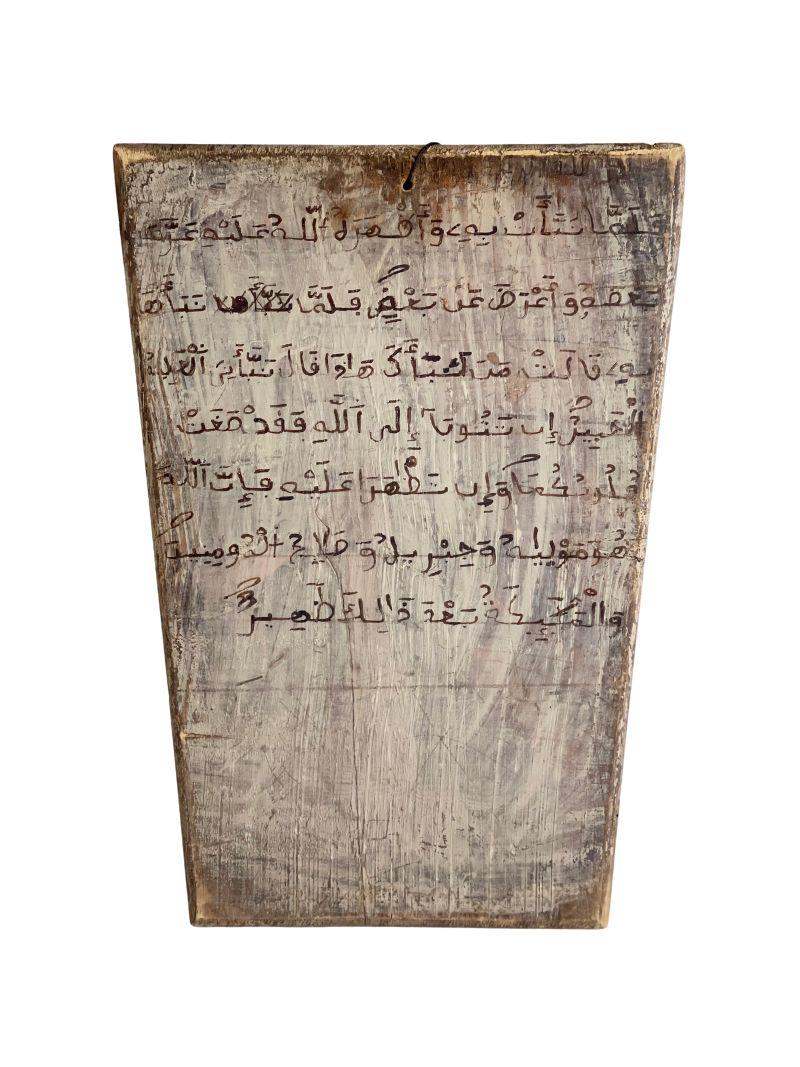 فلما نبأت به وأظهره الله عليه عرف
بعضه وأعرض عن بعض فلما نبأها
به قالت من أنبأك هاذا قال نبأني العليم
الخبير إن تتوبا إلى الله فقد صغت
قلوبكما وإن تظهرا عليه فإن الله
هو موليه وجبريل وصلح المومنين
والمليكة بعد ذالك ظهير